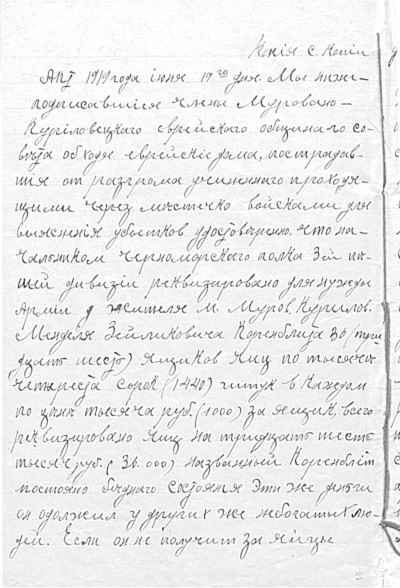 Копія с копіи
Акт 1919 года іюня 19го дня. Мы ниже-
подписавшіеся члены Мурованно-
Куриловецкаго еврейскаго общинаго со-
вѣта обходя еврейскіе дома, пострадав-
шія от разгрома учиненнаго проходя-
щими через мѣстечко войсками для
выясненія убытков удостовѣрено, что на-
чальником Черноморскаго полка 3ей пѣ-
шей дивизіи реквизировано для нужды
Арміи у жителя м. Муров. Курилов.
Менделя Зейликовича Коренблита 36 (трид
цать шесть) ящиков яиц по тысяча
четыреста сорок (1440) штук в каждом
по цѣнѣ тысяча руб. (1000) за ящик, всего
реквизировано яиц на тридцать шесть
тысяч руб. (36.000) названный Коренблит
постояно бѣднаго состоянія эти же деньги
он одолжил у других же небогатых лю-
дей. Если он не получит за яйцы